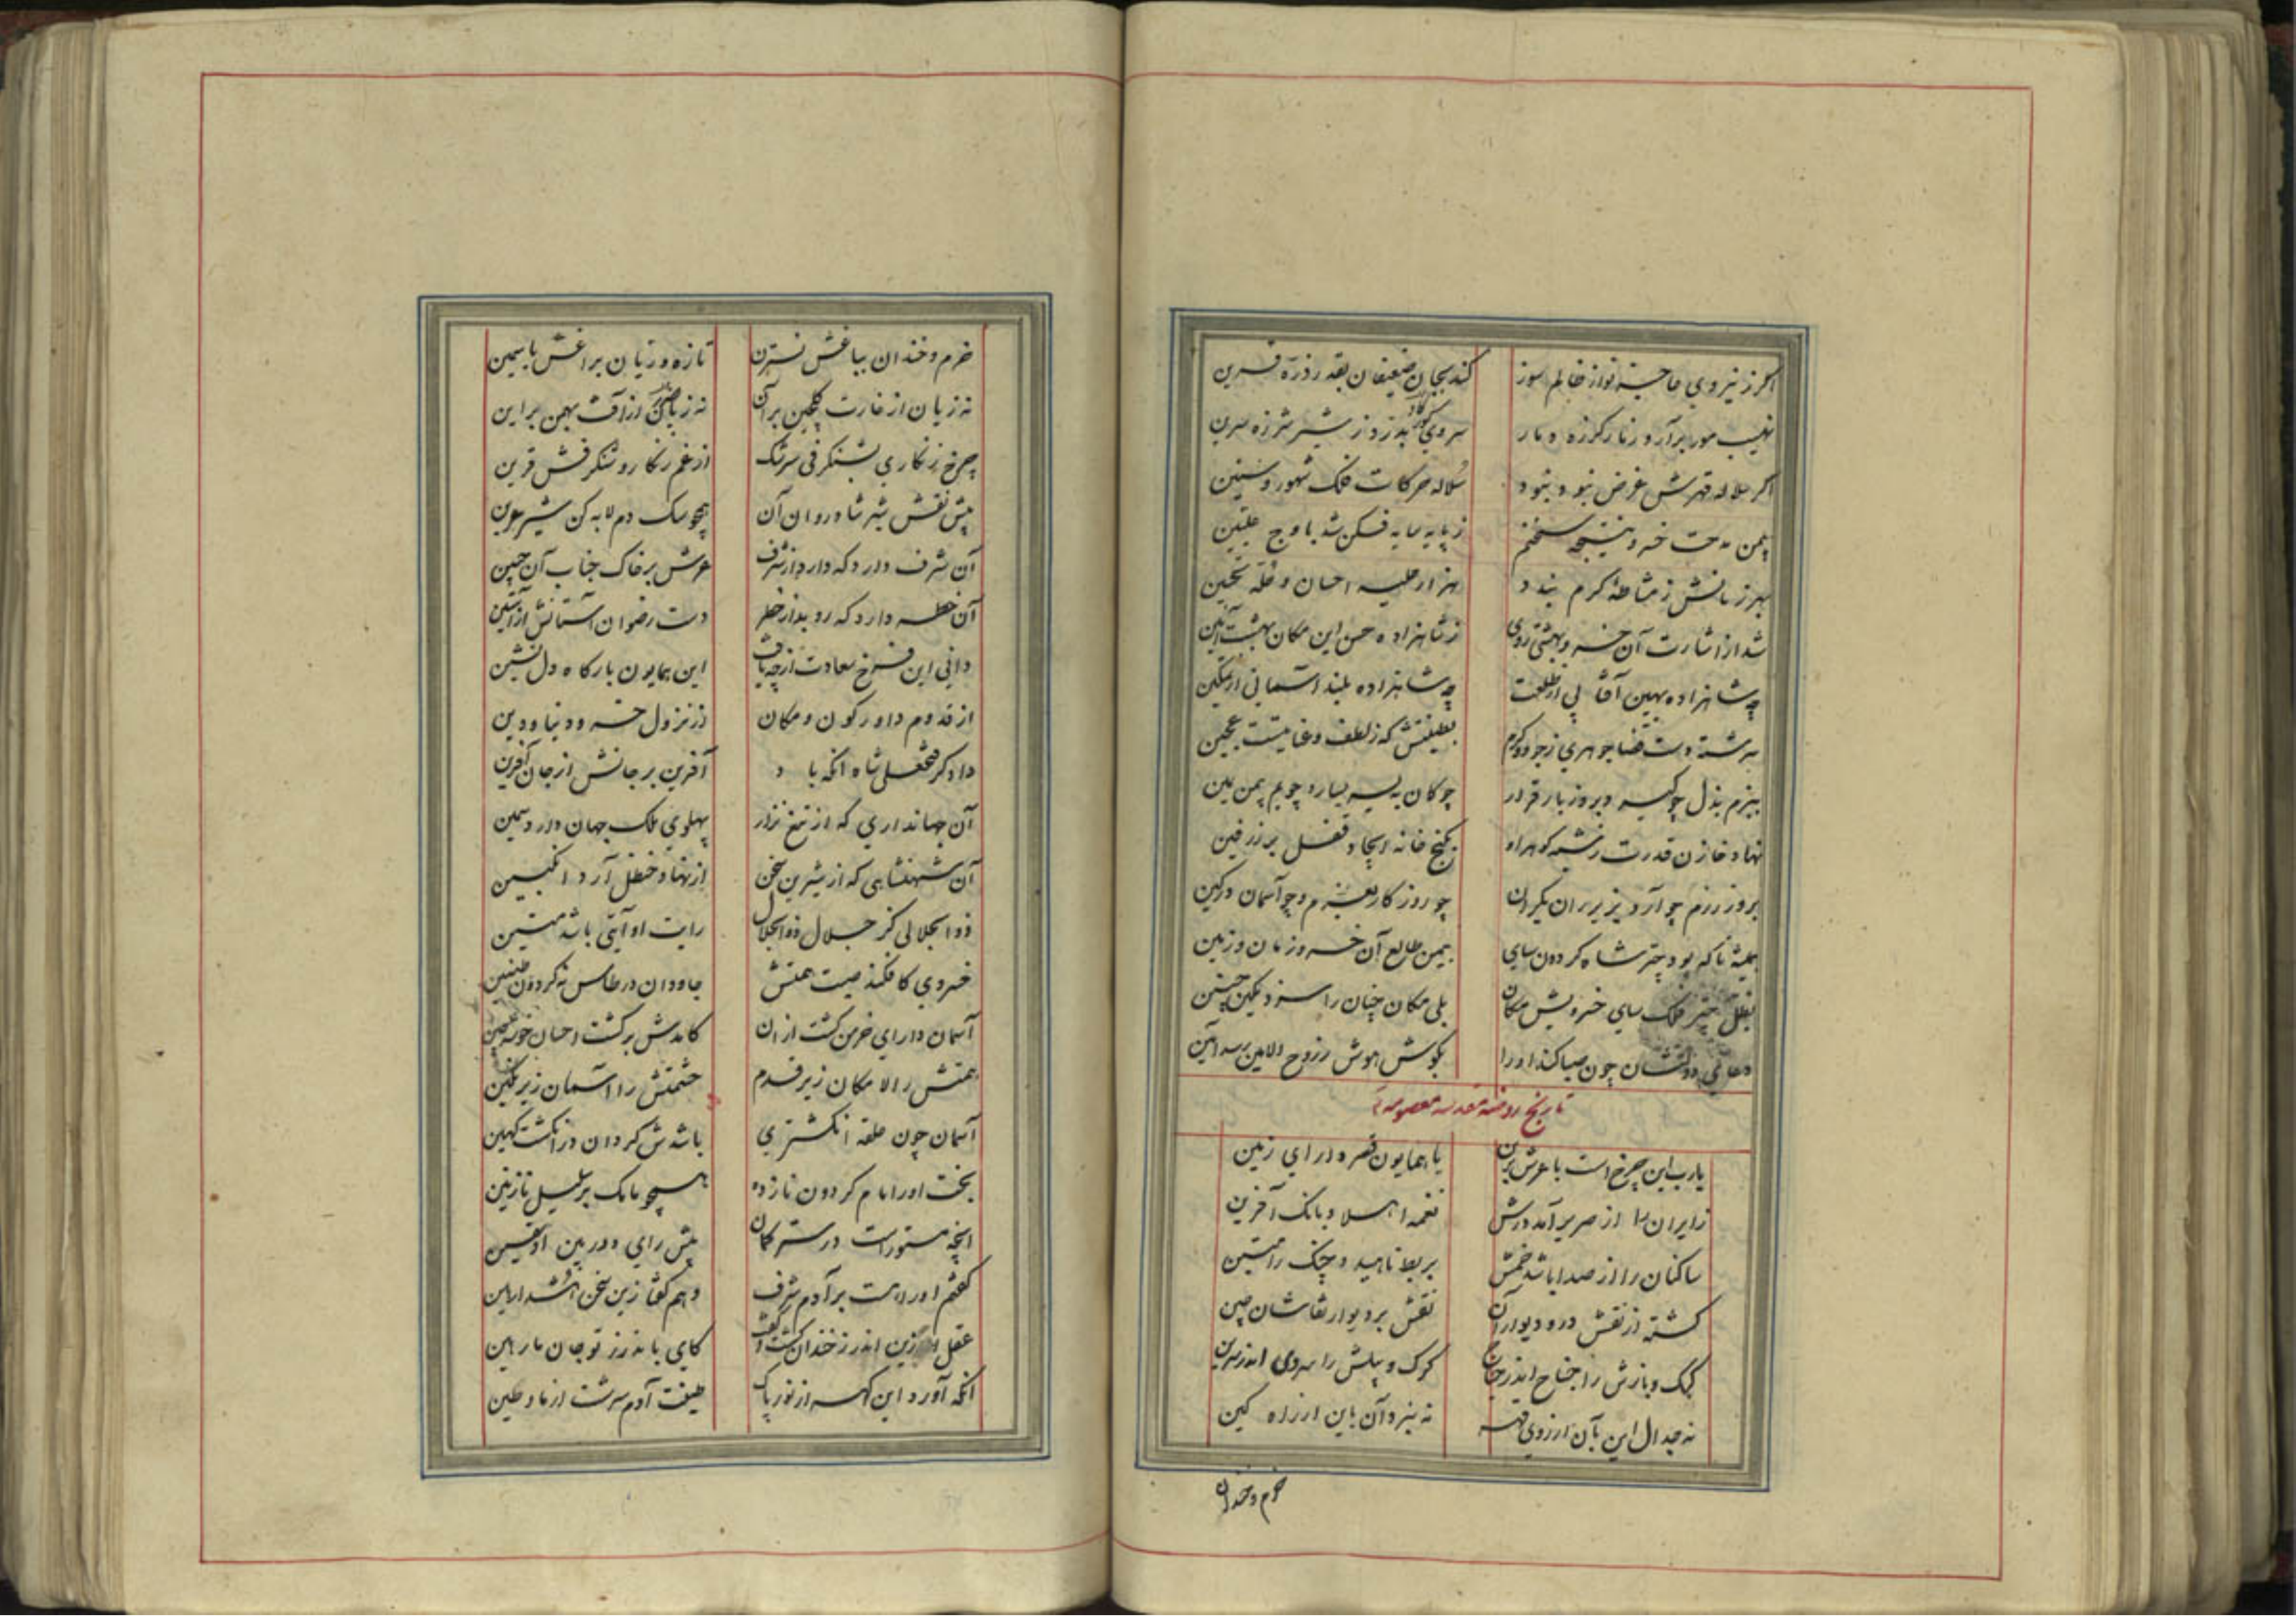 اگر ز نیروی عاجز نواز ظالم سوز کند بجان ضعیفان بقدر ذره قرین
نهیب مور برآرد ز مار گرزه دمار سروی گور بدرد ز شیر شرزه سرین
اگر سلاله قهرش غرض نبود و نبود سلاله حرکات فلک شهور و سنین
بیمن مدحت خسرو نتیجه سخنم ز پایه سایه فکن شد باوج علیین
هزار حلیه احسان و حله تحسین
شد از اشارت آن خسرو بهشتی روی ز شاهزاده حسن این مکان بهشت آیین
چه شاهزاده بهین آفتابی از طلعت چه شاهزاده بلند آسمانی از تمکین
سرشته دست قضا جوهری ز جود و کرم بطینتش که ز لطف و عنایتست عجین
ببزم بذل چو کیسه و بروز بار قرار چو کان به یسار و چو یم بیمن یمین
نهاد خازن قدرت ز رشته گوهر او بگنج خانه ایجاد قفل بر زرفین
بروز رزم چو آرد بزیر ران یکران چو روزگار بعزم و چو آسمان در کین
همیشه تا که بود چتر شاه گردون سای بیمن طالع آن خسرو زمان و زمین
بظل چتر فلک سای خسرویش مکان بلی مکان چنان را سزد مکین چنین
دعای دولتشان چون صبا کند او را بگوش هوش ز روح الامین رسد آمین
تاریخ روضه مقدسه معصومه
یارب این چرخ است یا عرش برین یا همایون قصر دارای زمین
زایران را از صریر آمد درش نغمه اهلا و بانک آفرین
ساکنان را از صدا باشد خمش بربط ناهید و چنک رامتین
گشته از نقش در و دیوار آن نقش بر دیوار نقاشان چین
کبک و بازش را جناح اندر جناح کرک و میش را سروی اندر سرین
نه جدال این بآن از روی قهر نه نبرد آن باین از راه کین
خرم و خندان
خرم و خندان بباغش نسترن تازه و رویان براغش یاسمین
نه زیان از غارت گلچین برآن نه ز آفت بهمن براین
چرخ زنگاری بشنگرفی سرشک از غم زنگار و شنگرفش قرین
پیش نقش شیر شادروان آن همچو سک دم لابه کن شیر عرین
آن شرف دارد که دارد از شرف عرش بر خاک جناب آن جبین
آن خطر دارد که روبد از خطر دست رضوان آستانش ز آستین
دانی این فرخ سعادت از چه یافت این همایون بارگاه دل نشین
از قدوم داور کون و مکان از نزول خسرو دنیا و دین
دادگر فتحعلی شاه آنکه باد آفرین بر جانش از جان آفرین
آن جهانداری که از تیغ نزار پهلوی ملک جهان دارد سمین
آن شهنشاهی که از شیرین سخن از نهاد حنظل آرد انگبین
ذوالجلالی کز جلال ذوالجلال رایت او آیتی باشد متین
خسروی کافکند صیت همتش جاودان در طاس نه گردون طنین
آسمان دارای خرمن گشت از آن کامدش بر کشت احسان خوشه چین
همتش را لامکان زیر قدم حشمتش را آسمان زیر نگین
آسمان چون حلقه انگشتری باشدش گردان در انگشت کهین
بخت او را رام گردون تا زده
آنچه مستور است در ستر گمان پیش رای دوربین او یقین
گفتم او را هست بر آدم شرف وهم گفتا زین سخن
عقل زین اندرز خندان گشت و گفت کای باندرز تو جان ما رهین
آنکه آورد این گهر از نور پاک طینت آدم سرشت از ماء و طین